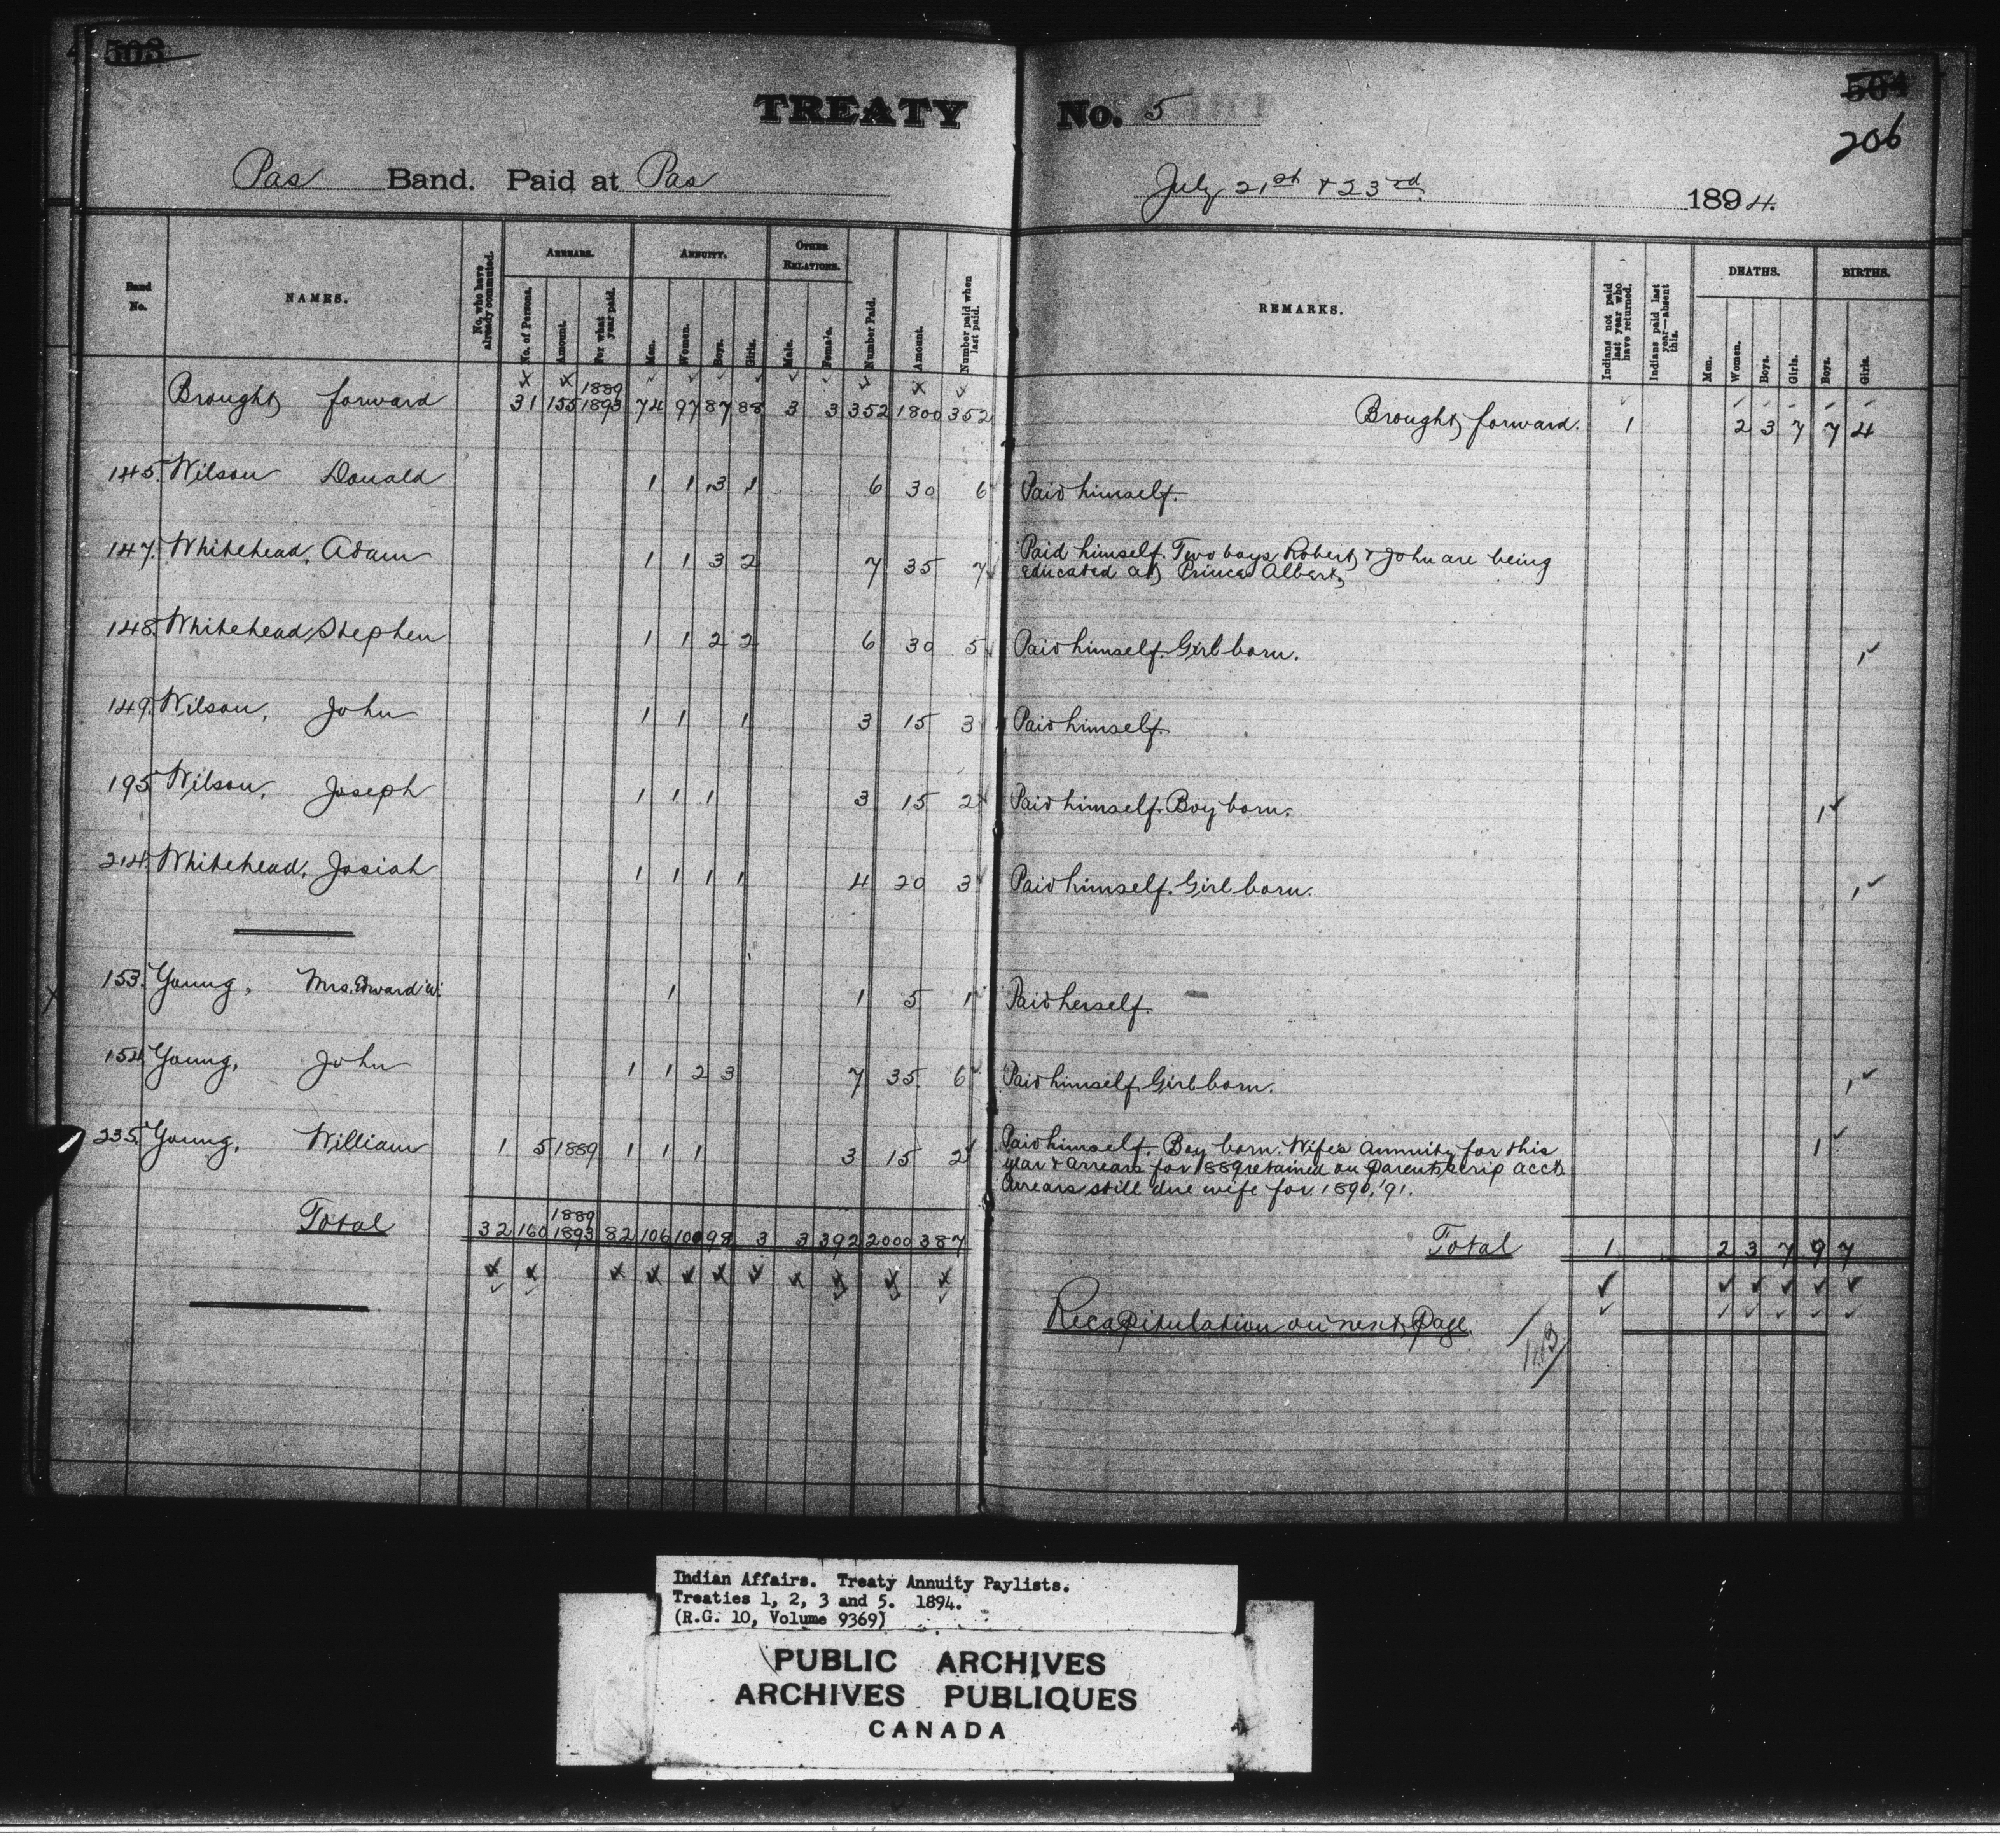 503
TREATY No. 5
504
206
Pas Band. Paid at Pas
July 21st & 23rd 1894.
Band No.
NAMES.
No. who have already commuted.
ARREARS.
No. of Persons.
Amount.
For what year paid.
ANNUITY.
Men.
Women.
Boys.
Girls.
OTHER RELATIONS.
Male.
Female.
Number Paid.
Amount.
Number paid when last paid.
REMARKS.
Indians not paid last year who have returned.
Indians paid last year—absent this.
DEATHS.
Men.
Women.
Boys.
Girls.
BIRTHS.
Boys.
Girls.
Brought forward 31 155 1889 1893 74 97 87 88 3 3 352 1800 352 Brought forward. 1 2 3 7 7 4
145. Wilson Donald 1 1 3 1 6 30 6 Paid himself.
147. Whitehead, Adam 1 1 3 2 7 35 7 Paid himself. Two boys Robert & John are being
educated at Prince Albert,
148. Whitehead, Stephen 1 1 2 2 6 30 5 Paid himself. Girl born. 1
149. Wilson, John 1 1 1 3 15 3 Paid himself.
195 Wilson, Joseph 1 1 1 3 15 2 Paid himself. Boy born. 1
214. Whitehead, Josiah 1 1 1 1 4 20 3 Paid himself. Girl born. 1
153. Young, Mrs. Edward W. 1 1 5 1 Paid herself.
154 Young, John 1 1 2 3 7 35 6 Paid himself. Girl born. 1
235. Young, William 1 5 1889 1 1 1 3 15 2 Paid himself. Boy born. Wife's annuity for this 1
year & arrears for 1889 retained on parents scrip acct.
Arrears still due wife for 1890, '91.
Total 32 160 1889 1893 82 106 100 98 3 3 392 2000 387 Total 1 2 3 7 9 7
Recapitulation on next Page.
Indian Affairs. Treaty Annuity Paylists.
Treaties 1, 2, 3 and 5. 1894.
(R.G. 10, Volume 9369)
PUBLIC ARCHIVES
ARCHIVES PUBLIQUES
CANADA